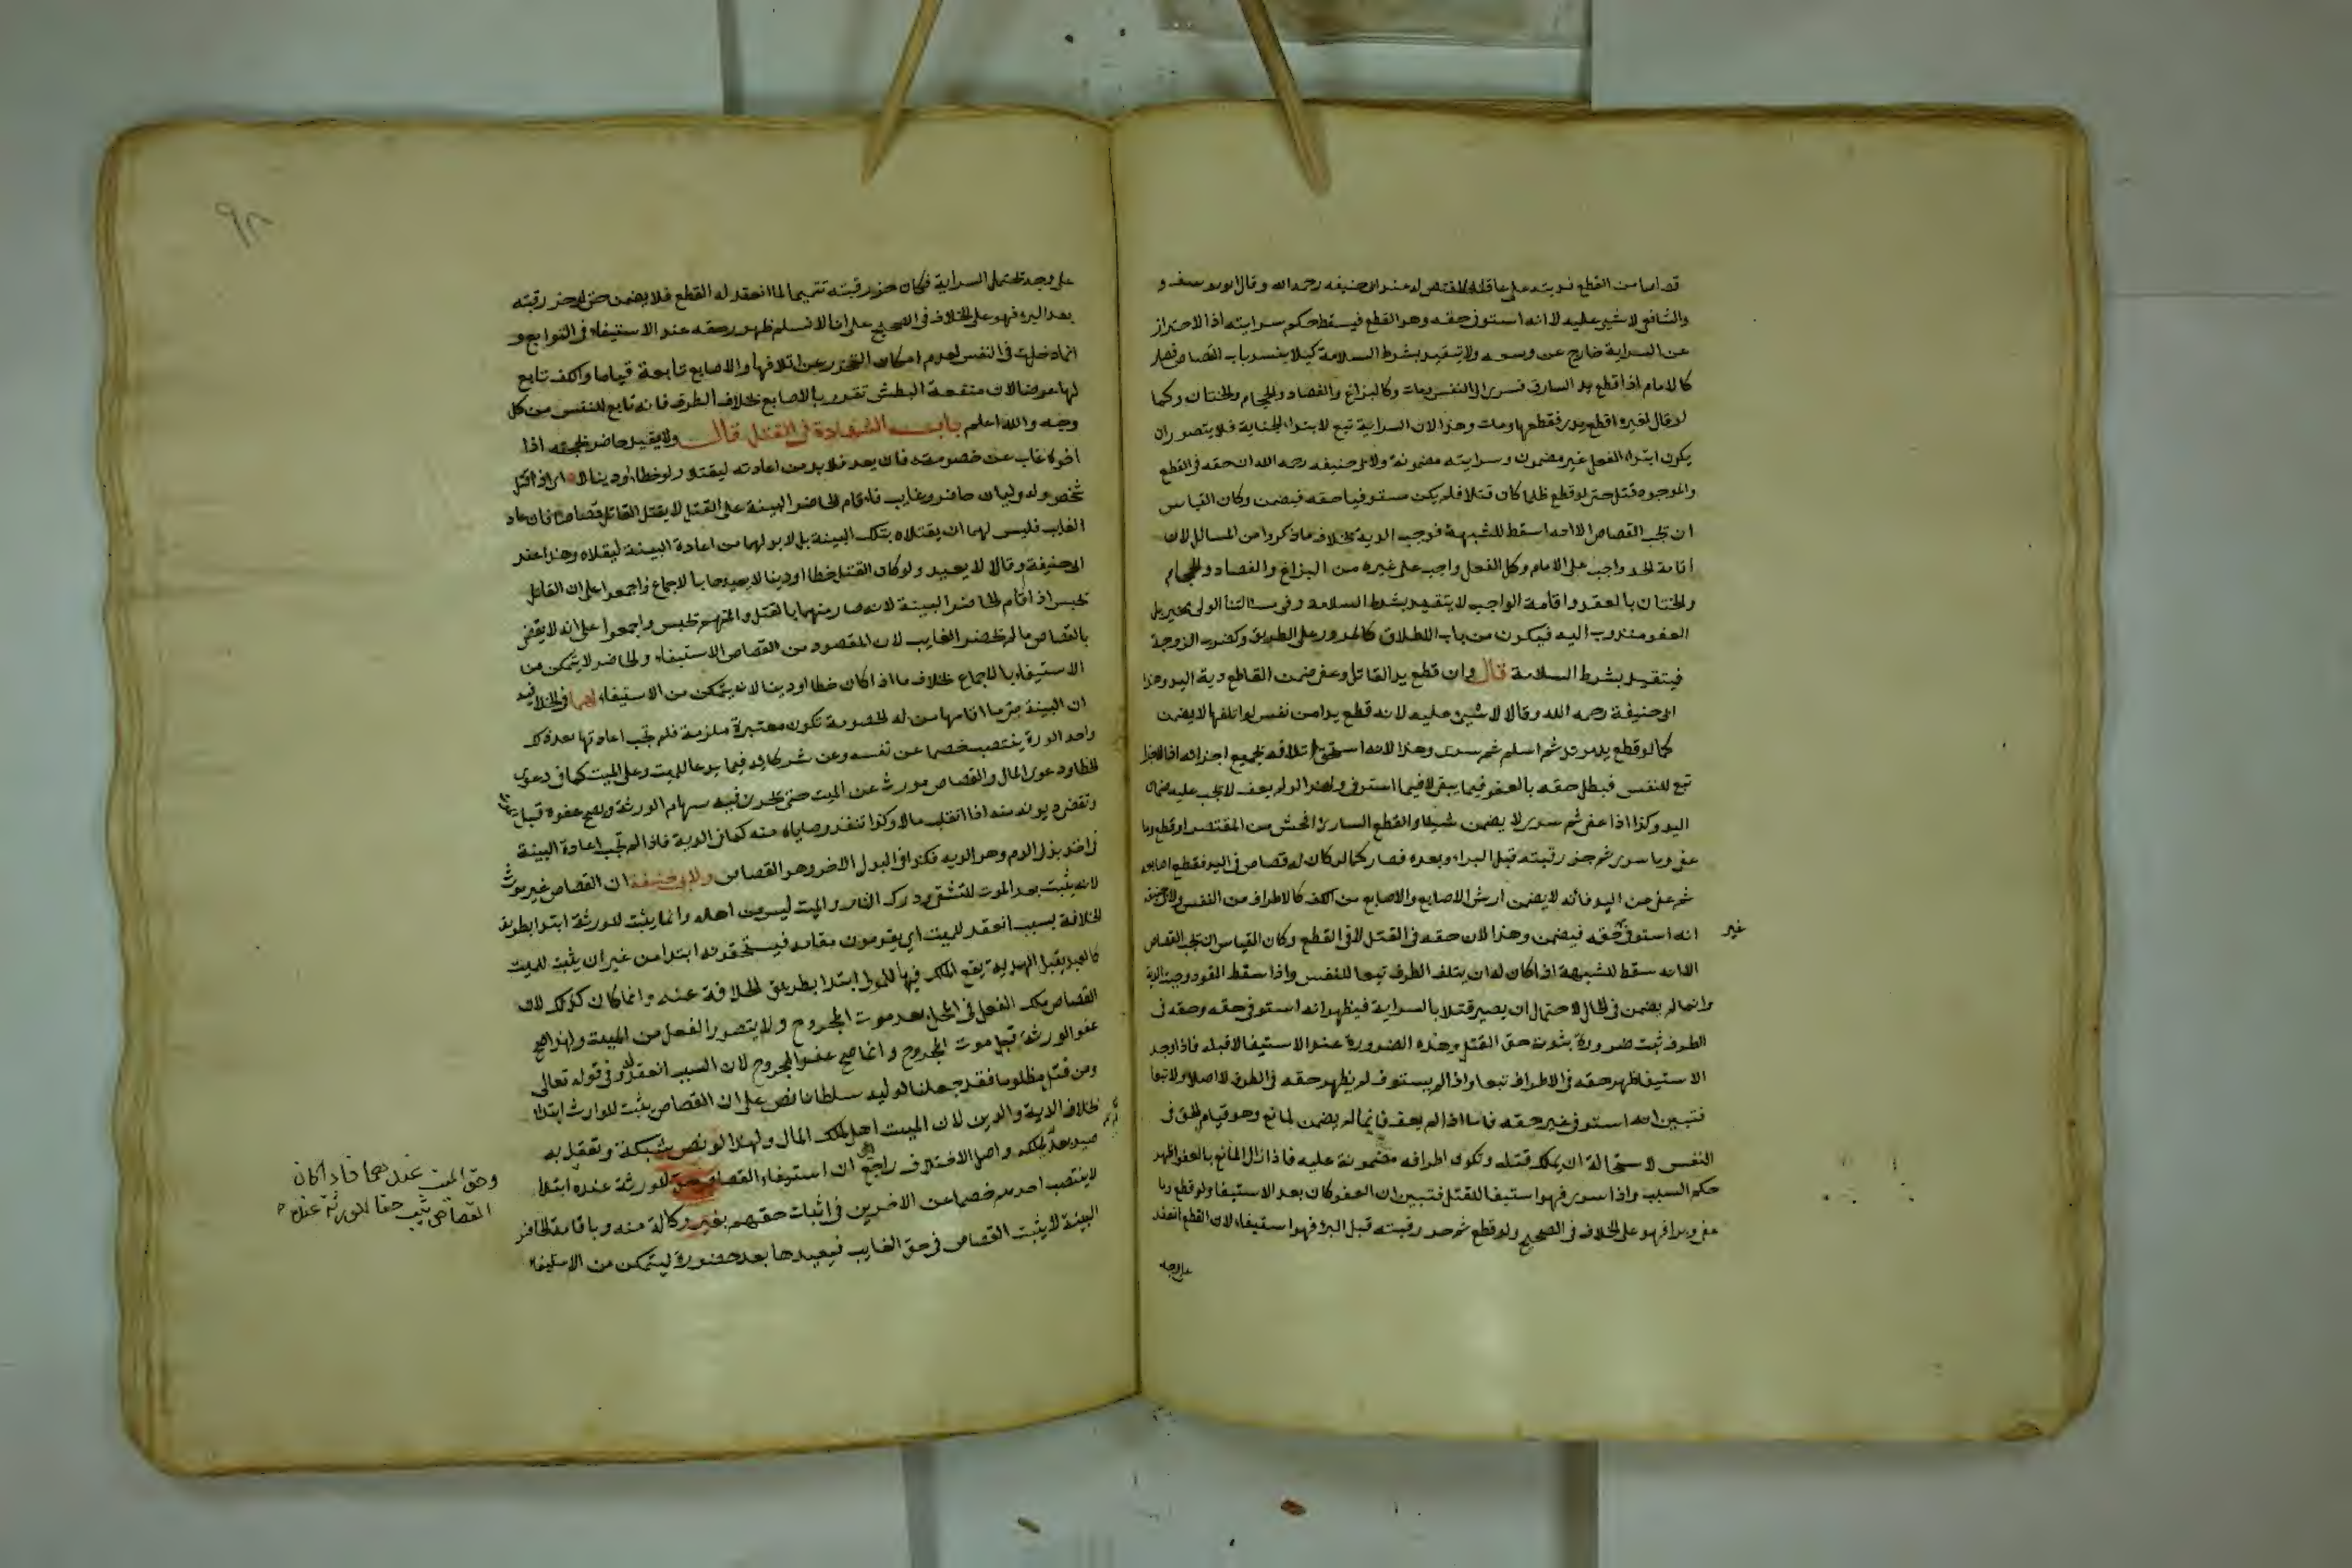 قصاصا من القطع فديته على عاقلة المقتص له عند ابي حنيفه رحمه الله وقال ابو يوسف و
والشافعي لا شيء عليه لانه استوفى حقه وهو القطع فيسقط حكم سرايته اذ الاحتراز
عن السراية خارج عن وسعه ولا يتقيد بشرط السلامة كيلا ينسد باب القصاص فصار
كالامام اذا قطع يد السارق فسرى الى النفس ومات وكالبزاغ والفصاد والحجام والختان وكما
لو قال لغيره اقطع يدي فقطعها ومات وهذا لان السراية تبع لابتداء الجناية فلا يتصور ان
يكون ابتداء الفعل غير مضمون وسرايته مضمونة ولابي حنيفه رحمه الله ان حقه في القطع
والموجود قتل حتى لو قطع ظلما كان قتلا فلم يكن مستوفيا حقه فيضمن وكان القياس
ان يجب القصاص الا انه اسقط للشبهة فوجب الدية بخلاف ما ذكروا من المسائل لان
اقامة الحد واجب على الامام وكل الفعل واجب على غيره من البزاغ والفصاد والحجام
والختان بالعقد واقامة الواجب لا يتقيد بشرط السلامه وفي مسالتنا الولي مخير بل
العفو مندوب اليه فيكون من باب الاطلاق كالمرور على الطريق وكضرب الزوجة
فيتقيد بشرط السلامة قال وان قطع يد القاتل وعفى ضمن القاطع دية اليد وهذا
ابي حنيفة رحمه الله وقالا لا شيئ عليه لانه قطع يدا من نفس لو اتلفها لا يضمن
كما لو قطع يد مرتد ثم اسلم ثم سرى وهذا لانه استحق اتلافه بجميع اجزائه اذ الاجزاء
تبع للنفس فبطل حقه بالعفو فيما يبقى لا فيما استوفى ولهذا لو لم يعف لا يجب عليه ضمان
اليد وكذا اذا عفى ثم سرى لا يضمن شيئا والقطع الساري افحش من المقتصر او قطع وما
عفى وما سرى ثم حز رقبته قبل البراء وبعده فصار كما لو كان له قصاص في اليد فقطع اصابعه
ثم عفى عن اليد فانه لا يضمن ارش الاصابع والاصابع من الكف كالاطراف من النفس ولابي حنيفه
انه استوفى حقه فيضمن وهذا لان حقه في القتل لا في القطع وكان القياس ان يجب القصاص
غير
الا انه سقط للشبهة اذ كان له ان يتلف الطرف تبعا للنفس واذا سقط القود وجبت الدية
وانما لم يضمن في الحال لاحتمال ان يصير قتلا بالسراية فيظهر انه استوفى حقه وحقه في
الطرف ثبت ضرورة ثبوت حق القتل وهذه الضرورة عند الاستيفا لا قبله فاذا وجد
الاستيفا ظهر حقه في الاطراف تبعا واذا لم يستوف لم يظهر حقه في الطرف لا اصلا ولا تبعا
فتبين انه استوفى غير حقه فاما اذا لم يعف فانما لم يضمن لمانع وهو قيام الحق في
النفس لاستحالة ان يملك قتله وتكون اطرافه مضمونة عليه فاذا زال المانع بالعفو ظهر
حكم السبب واذا سرى فهو استيفا للقتل فتبين ان العفو كان بعد الاستيفا ولو قطع وما
عفى وبرا فهو على الخلاف في الصحيح ولو قطع ثم حز رقبته قبل البرء فهو استيفاء لان القطع انعقد
على وجه
٩٨
على وجه يحتمل السراية فكان حز رقبته تتميما لما انعقد له القطع فلا يضمن حتى لو حز رقبته
بعد البرء فهو على الخلاف في الصحيح على انا لا نسلم ظهور حقه عند الاستيفاء في التوابع و
انما دخلت في النفس لعدم امكان التحرز عن اتلافها والاصابع تابعة قياما والكف تابع
لها عرضا لان منفعة البطش تقوم بالاصابع بخلاف الطرف فانه تابع للنفس من كل
وجه والله اعلم باب الشهادة في القتل قال ولا يقيد حاضر بحجته اذا
اخوه غاب عن خصومته فان يعد فلا بد من اعادته ليقتلا ولو خطا او دينا لا اي اذا قتل
شخص وله وليان حاضر وغايب فاقام الحاضر البينة على القتل لا يقتل القاتل قصاصا فان عاد
الغايب فليس لهما ان يقتلاه بتلك البينة بل لا بد لهما من اعادة البينة ليقتلاه وهذا عند
ابي حنيفة وقالا لا يعيد ولو كان القتل خطا او دينا لا يعيدها بالاجماع واجمعوا على ان القاتل
يحبس اذا اقام الحاضر البينة لانه صار متهما بالقتل والمتهم يحبس واجمعوا على انه لا يقضى
بالقصاص ما لم يحضر الغايب لان المقصود من القصاص الاستيفاء والحاضر لا يتمكن من
الاستيفاء بالاجماع بخلاف ما اذا كان خطا او دينا لانه يتمكن من الاستيفاء لهما في الخلافيه
ان البينة متى ما اقامها من له الخصومة تكون معتبرة ملزمة فلم تجب اعادتها بعد ذلك
واحد الورثة ينتصب خصما عن نفسه وعن شركائه فيما يدعا للميت وعلى الميت كما في دعوى
الخطا ودعوى المال والقصاص مورث عن الميت حتى تجري فيه سهام الورثة ويصح عفوه قبل
وتقضى ديونه منه اذا انقلب مالا وكذا تنفذ وصاياه منه كما في الدية فاذا لم تجب اعادة البينة
في احد بدلي الدم وهو الديه فكذا في البدل الاخر وهو القصاص ولابي حنيفة ان القصاص غير موروث
لانه يثبت بعد الموت للتشفي ودرك الثار والميت ليس من اهله وانما يثبت للورثة ابتدا بطريق
الخلافة بسبب انعقد للميت اي يقومون مقامه فيستحقونه ابتدا من غير ان يثبت للميت
كالعبد يقبل الهدية يقع الملك فيها للمولى ابتدا بطريق الخلافة عنه وانما كان كذلك لان
القصاص ملك الفعل في المحل بعد موت المجروح ولا يتصور الفعل من الميت ولهذا صح
عفو الورثة قبل موت المجروح وانما صح عفو المجروح لان السبب انعقد له وفي قوله تعالى
ومن قتل مظلوما فقد جعلنا لوليه سلطانا نص على ان القصاص يثبت للوارث ابتداء
بخلاف الدية والدين لان الميت اهل لملك المال ولهذا لو نصب شبكة وتعقل به
صيد بعد يملكه واصل الاختلاف راجع الى ان استيفاء القصاص حق للورثة عنده ابتداء
لا ينتصب احدهم خصما عن الاخرين في اثبات حقهم بغير وكالة منه وباقامة الحاضر
البينة لا يثبت القصاص في حق الغايب فيعيدها بعد حضوره ليتمكن من الاستيفاء
وحق الميت عندهما فاذا كان
القصاص يثبت حقا للورثة عنده